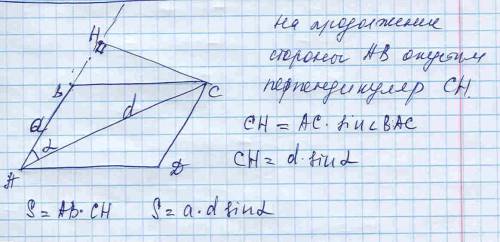 на продолжение
стороны AB опустим
перпендикуляр CH.
CH = AC · sin∠BAC
CH = d · sinα
H
B
C
a
d
α
A
D
S = AB · CH S = a · d sinα